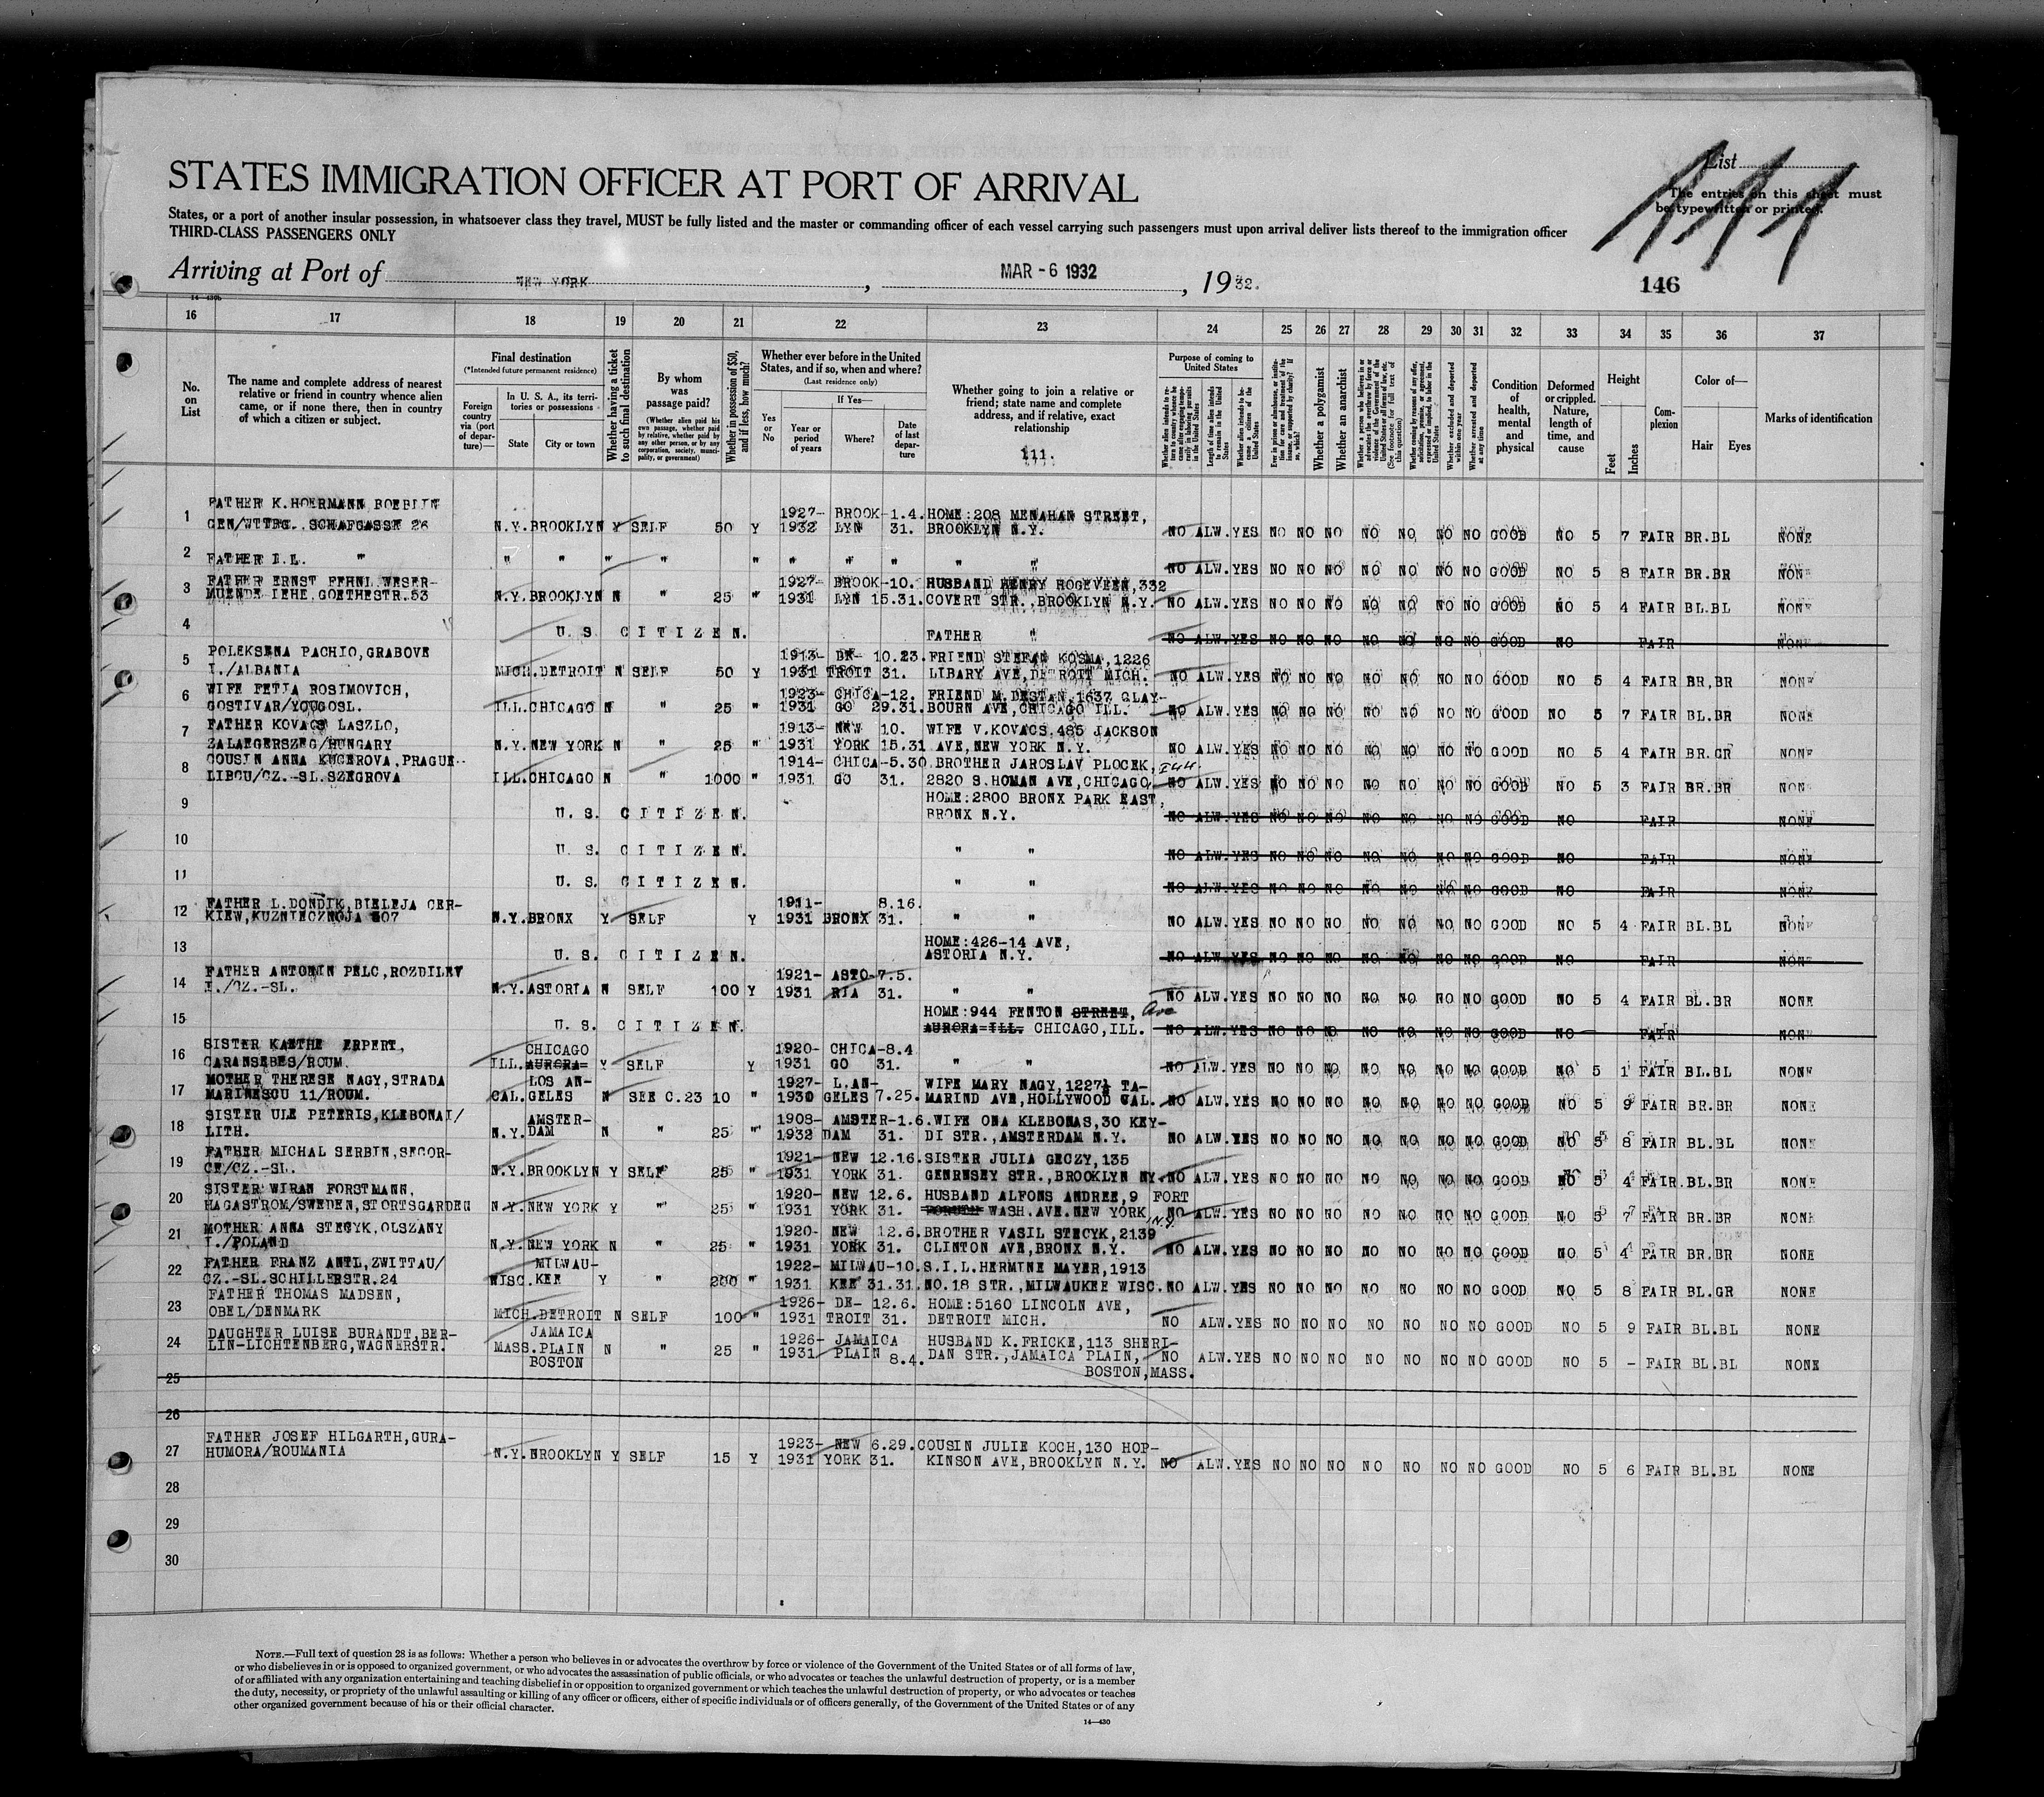 STATES IMMIGRATION OFFICER AT PORT OF ARRIVAL
List
The entries on this sheet must
be typewritten or printed.
111
States, or a port of another insular possession, in whatsoever class they travel, MUST be fully listed and the master or commanding officer of each vessel carrying such passengers must upon arrival deliver lists thereof to the immigration officer
THIRD-CLASS PASSENGERS ONLY
Arriving at Port of NEW YORK, MAR - 6 1932, 1932.
146
14—430b
16 17 18 19 20 21 22 23 24 25 26 27 28 29 30 31 32 33 34 35 36 37
No. on List
The name and complete address of nearest relative or friend in country whence alien came, or if none there, then in country of which a citizen or subject.
Final destination
(*Intended future permanent residence)
Foreign country via (port of departure)—
In U. S. A., its territories or possessions
State
City or town
Whether having a ticket to such final destination
By whom was passage paid?
(Whether alien paid his own passage, whether paid by relative, whether paid by any other person, or by any corporation, society, municipality, or government)
Whether in possession of $50, and if less, how much?
Whether ever before in the United States, and if so, when and where?
(Last residence only)
Yes or No
If Yes—
Year or period of years
Where?
Date of last departure
Whether going to join a relative or friend; state name and complete address, and if relative, exact relationship
111.
Purpose of coming to United States
Whether alien intends to return to country whence he came after engaging temporarily in laboring pursuits in the United States
Length of time alien intends to remain in the United States
Whether alien intends to become a citizen of the United States
Ever in prison or almshouse, or institution for care and treatment of the insane, or supported by charity? If so, which?
Whether a polygamist
Whether an anarchist
Whether a person who believes in or advocates the overthrow by force or violence of the Government of the United States or all forms of law, etc. (See footnote for full text of this question)
Whether coming by reasons of any offer, solicitation, promise, or agreement, expressed or implied, to labor in the United States
Whether excluded and deported within one year
Whether arrested and deported at any time
Condition of health, mental and physical
Deformed or crippled. Nature, length of time, and cause
Height
Feet
Inches
Complexion
Color of—
Hair Eyes
Marks of identification
1 FATHER K.HOERMANN BOEBLIN
GEN/WTTBG. SCHAFGASSE 26 N.Y. BROOKLYN Y SELF 50 Y 1927-1932 BROOK-LYN 1.4.31. HOME:208 MENAHAN STREET, BROOKLYN N.Y. NO ALW. YES NO NO NO NO NO NO NO GOOD NO 5 7 FAIR BR.BL NONE
2 FATHER I.L. " " " " " " " " " " " NO ALW. YES NO NO NO NO NO NO NO GOOD NO 5 8 FAIR BR.BR NONE
3 FATHER ERNST FEHNL WESER-
MUENDE LEHE.GOETHESTR.53 N.Y. BROOKLYN N " 25 " 1927-1931 BROOK-LYN 10.15.31. HUSBAND HENRY HOGEVEEN,332 COVERT STR.,BROOKLYN N.Y. NO ALW. YES NO NO NO NO NO NO NO GOOD NO 5 4 FAIR BL.BL NONE
4 U. S. CITIZEN. FATHER " NO ALW. YES NO NO NO NO NO NO NO GOOD NO FAIR NONE
5 POLEKSENA PACHIO,GRABOVE
I./ALBANIA MICH. DETROIT N SELF 50 Y 1913-1931 DE-TROIT 10.23.31. FRIEND STEFAN KOSMA,1226 LIBARY AVE,DETROIT MICH. NO ALW. YES NO NO NO NO NO NO NO GOOD NO 5 4 FAIR BR,BR NONE
6 WIFE FETJA ROSIMOVICH,
GOSTIVAR/YOUGOSL. ILL. CHICAGO N " 25 " 1923-1931 CHICA-GO 12.29.31. FRIEND M.DESTAN,1637 CLAY-BOURN AVE,CHICAGO ILL. NO ALW. YES NO NO NO NO NO NO NO GOOD NO 5 7 FAIR BL.BR NONE
7 FATHER KOVACS LASZLO,
ZALAEGERSZEG/HUNGARY N.Y. NEW YORK N " 25 " 1913-1931 NEW YORK 10.15.31 WIFE V.KOVACS,485 JACKSON AVE,NEW YORK N.Y. NO ALW. YES NO NO NO NO NO NO NO GOOD NO 5 4 FAIR BR.GR NONE
8 COUSIN ANNA KUCEROVA,PRAGUE-
LIBCU/CZ.-SL.SZEGROVA ILL. CHICAGO N " 1000 " 1914-1931 CHICA-GO 5.30.31. BROTHER JAROSLAV PLOCEK, 2820 S.HOMAN AVE,CHICAGO NO ALW. YES NO NO NO NO NO NO NO GOOD NO 5 3 FAIR BR.BR NONE
9 U. S. CITIZEN. HOME:2800 BRONX PARK EAST, BRONX N.Y. NO ALW. YES NO NO NO NO NO NO NO GOOD NO FAIR NONE
10 U. S. CITIZEN. " " NO ALW. YES NO NO NO NO NO NO NO GOOD NO FAIR NONE
11 U. S. CITIZEN. " " NO ALW. YES NO NO NO NO NO NO NO GOOD NO FAIR NONE
12 FATHER L.DONDIK,BIELEJA CER-
KIEW,KUZNIECZNOJA 607 N.Y. BRONX Y SELF Y 1911-1931 BRONX 8.16.31. " " NO ALW. YES NO NO NO NO NO NO NO GOOD NO 5 4 FAIR BL.BL NONE
13 U. S. CITIZEN. HOME:426-14 AVE, ASTORIA N.Y. NO ALW. YES NO NO NO NO NO NO NO GOOD NO FAIR NONE
14 FATHER ANTONIN PELC,ROZDILEV
I./CZ.-SL. N.Y. ASTORIA N SELF 100 Y 1921-1931 ASTO-RIA 7.5.31. " " NO ALW. YES NO NO NO NO NO NO NO GOOD NO 5 4 FAIR BL.BR NONE
15 U. S. CITIZEN. HOME:944 FENTON STREET, Ave AURORA=ILL. CHICAGO,ILL. NO ALW. YES NO NO NO NO NO NO NO GOOD NO FAIR NONE
16 SISTER KAETHE ERPERT,
CARANSEBES/ROUM. ILL. CHICAGO AURORA= Y SELF Y 1920-1931 CHICA-GO 8.4 31. " " NO ALW. YES NO NO NO NO NO NO NO GOOD NO 5 1 FAIR BL.BL NONE
17 MOTHER THERESE NAGY,STRADA
MARINESCU 11/ROUM. CAL. LOS AN-GELES N SEE C.23 10 " 1927-1930 L.AN-GELES 7.25. WIFE MARY NAGY,1227½ TA-MARIND AVE,HOLLYWOOD CAL. NO ALW. YES NO NO NO NO NO NO NO GOOD NO 5 9 FAIR BR.BR NONE
18 SISTER ULE PETERIS,KLEBONAI/
LITH. N.Y. AMSTER-DAM N " 25 " 1908-1932 AMSTER-DAM 1.6.31. WIFE ONA KLEBONAS,30 KEY-DI STR.,AMSTERDAM N.Y. NO ALW. YES NO NO NO NO NO NO NO GOOD NO 5 8 FAIR BL.BL NONE
19 FATHER MICHAL SERBIN,SECOR-
CE/CZ.-SL. N.Y. BROOKLYN Y SELF 25 " 1921-1931 NEW YORK 12.16.31. SISTER JULIA GECZY,135 GENRNSEY STR.,BROOKLYN NY. NO ALW. YES NO NO NO NO NO NO NO GOOD NO 5 4 FAIR BL.BR NONE
20 SISTER WIRAN FORSTMANN,
HAGASTROM/SWEDEN,STORTSGARDEN N.Y. NEW YORK Y " 25 " 1920-1931 NEW YORK 12.6.31. HUSBAND ALFONS ANDREE,9 FORT WASH.AVE.NEW YORK N.Y. NO ALW. YES NO NO NO NO NO NO NO GOOD NO 5 7 FAIR BR.BR NONE
21 MOTHER ANNA STECYK,OLSZANY
I./POLAND N.Y. NEW YORK N " 25 " 1920-1931 NEW YORK 12.6.31. BROTHER VASIL STECYK,2139 CLINTON AVE,BRONX N.Y. NO ALW. YES NO NO NO NO NO NO NO GOOD NO 5 4 FAIR BR.BR NONE
22 FATHER FRANZ ANTL,ZWITTAU/
CZ.-SL.SCHILLERSTR.24 WISC. MILWAU-KEE Y " 200 " 1922-1931 MILWAU-KEE 10.31.31. S.I.L.HERMINE MAYER,1913 NO.18 STR.,MILWAUKEE WISC. NO ALW. YES NO NO NO NO NO NO NO GOOD NO 5 8 FAIR BL.GR NONE
23 FATHER THOMAS MADSEN,
OBEL/DENMARK MICH. DETROIT N SELF 100 " 1926-1931 DE-TROIT 12.6.31. HOME:5160 LINCOLN AVE, DETROIT MICH. NO ALW. YES NO NO NO NO NO NO NO GOOD NO 5 9 FAIR BL.BL NONE
24 DAUGHTER LUISE BURANDT,BER-
LIN-LICHTENBERG,WAGNERSTR. MASS. JAMAICA PLAIN BOSTON N " 25 " 1926-1931 JAMAICA PLAIN 8.4. HUSBAND K.FRICKE,113 SHERI-DAN STR.,JAMAICA PLAIN, BOSTON,MASS. NO ALW. YES NO NO NO NO NO NO NO GOOD NO 5 - FAIR BL.BL NONE
25
26
27 FATHER JOSEF HILGARTH,GURA-
HUMORA/ROUMANIA N.Y. BROOKLYN Y SELF 15 Y 1923-1931 NEW YORK 6.29.31. COUSIN JULIE KOCH,130 HOP-KINSON AVE,BROOKLYN N.Y. NO ALW. YES NO NO NO NO NO NO NO GOOD NO 5 6 FAIR BL.BL NONE
28
29
30
NOTE.—Full text of question 28 is as follows: Whether a person who believes in or advocates the overthrow by force or violence of the Government of the United States or of all forms of law,
or who disbelieves in or is opposed to organized government, or who advocates the assassination of public officials, or who advocates or teaches the unlawful destruction of property, or is a member
of or affiliated with any organization entertaining and teaching disbelief in or opposition to organized government or which teaches the unlawful destruction of property, or who advocates or teaches
the duty, necessity, or propriety of the unlawful assaulting or killing of any officer or officers, either of specific individuals or of officers generally, of the Government of the United States or of any
other organized government because of his or their official character.
14—430